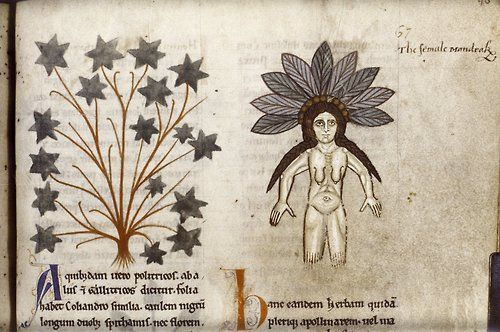 67
The female Mandrake
Aquibusdam uero politricos. ab a
liis & Gallitricos dicitur. folia
habet Coliandro similia. caulem nigrũ
longum duob; sprthamis. nec florem.
Hanc eandem herbam quidã
pleriq; apollinarem. uel ma